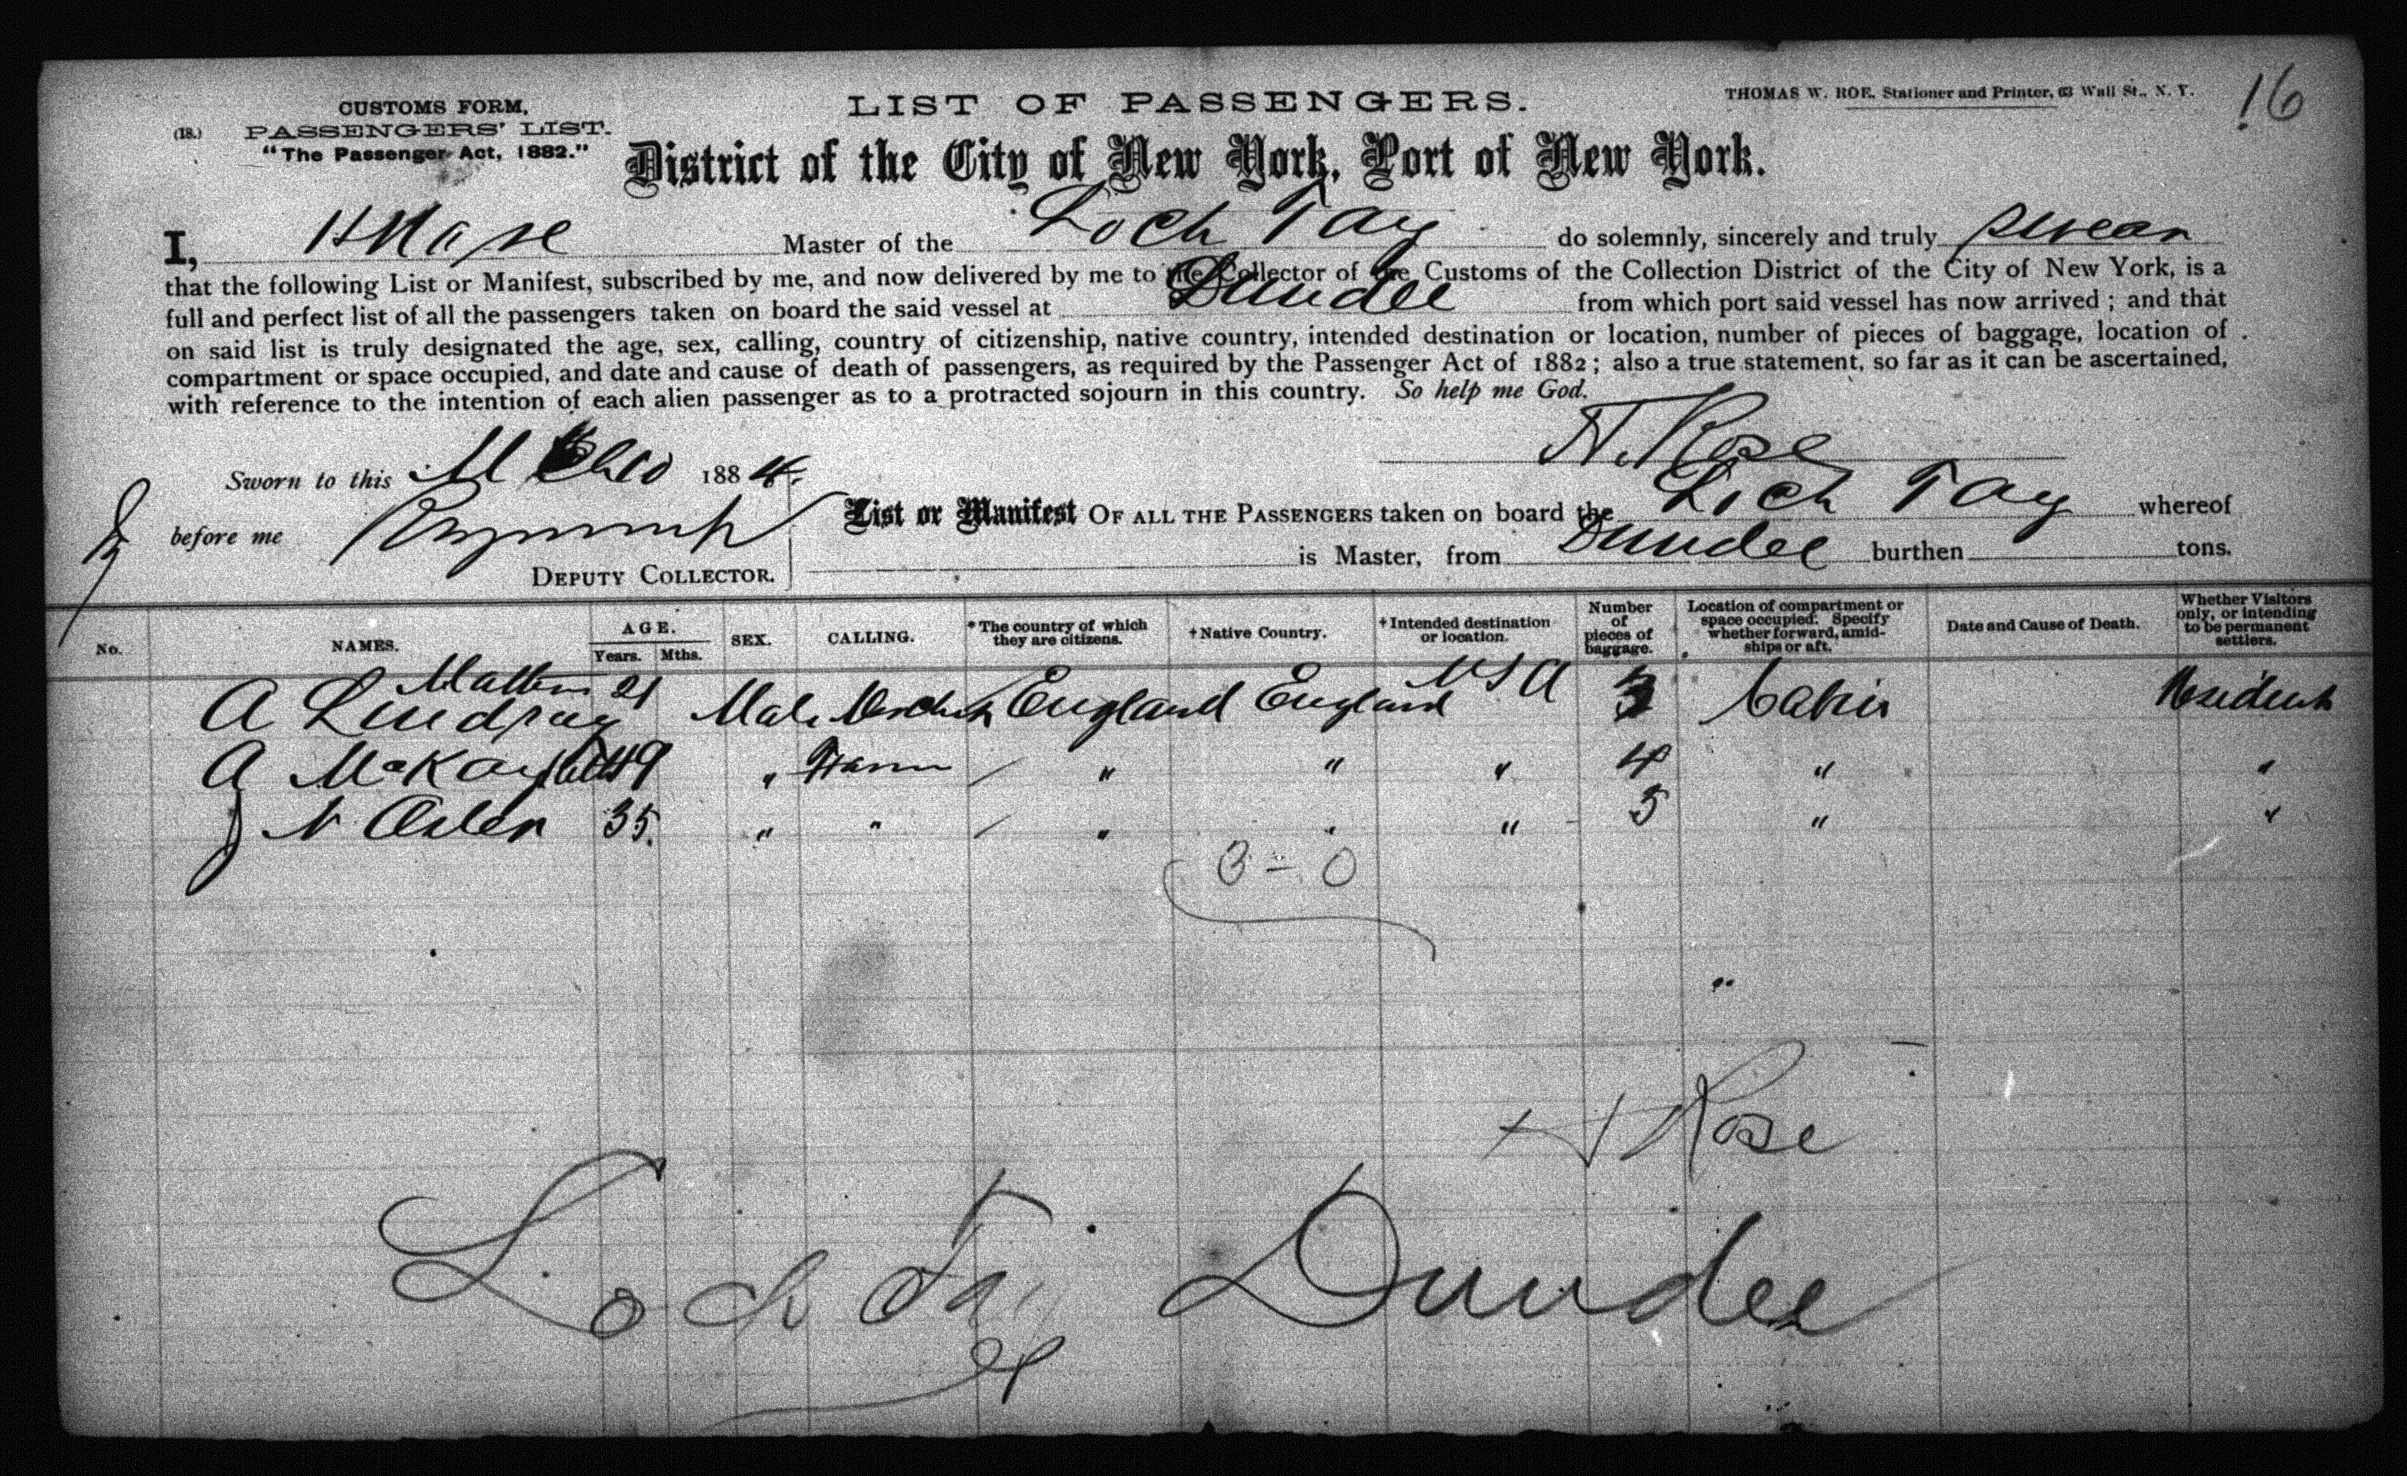 CUSTOMS FORM,
(18.) PASSENGERS' LIST.
"The Passenger Act, 1882."
LIST OF PASSENGERS.
THOMAS W. ROE, Stationer and Printer, 63 Wall St., N. Y.
16
District of the City of New York, Port of New York.
I, H Rose Master of the Loch Tay do solemnly, sincerely and truly swear
that the following List or Manifest, subscribed by me, and now delivered by me to the Collector of the Customs of the Collection District of the City of New York, is a
full and perfect list of all the passengers taken on board the said vessel at Dundee from which port said vessel has now arrived ; and that
on said list is truly designated the age, sex, calling, country of citizenship, native country, intended destination or location, number of pieces of baggage, location of
compartment or space occupied, and date and cause of death of passengers, as required by the Passenger Act of 1882 ; also a true statement, so far as it can be ascertained,
with reference to the intention of each alien passenger as to a protracted sojourn in this country. So help me God.
H. Rose
Sworn to this Mch 10 1884.
before me
DEPUTY COLLECTOR.
List or Manifest OF ALL THE PASSENGERS taken on board the Loch Tay whereof
is Master, from Dundee burthen tons.
No. NAMES. AGE. Years. Mths. SEX. CALLING. *The country of which they are citizens. †Native Country. †Intended destination or location. Number of pieces of baggage. Location of compartment or space occupied. Specify whether forward, amidships or aft. Date and Cause of Death. Whether Visitors only, or intending to be permanent settlers.
A Lindsay 21 Male England England USA 3 Cabin Resident
A McKay 49 " / " " " 4 " "
J N 35. " " / " " " 5 " "
3 - 0
H Rose
Loch Tay Dundee